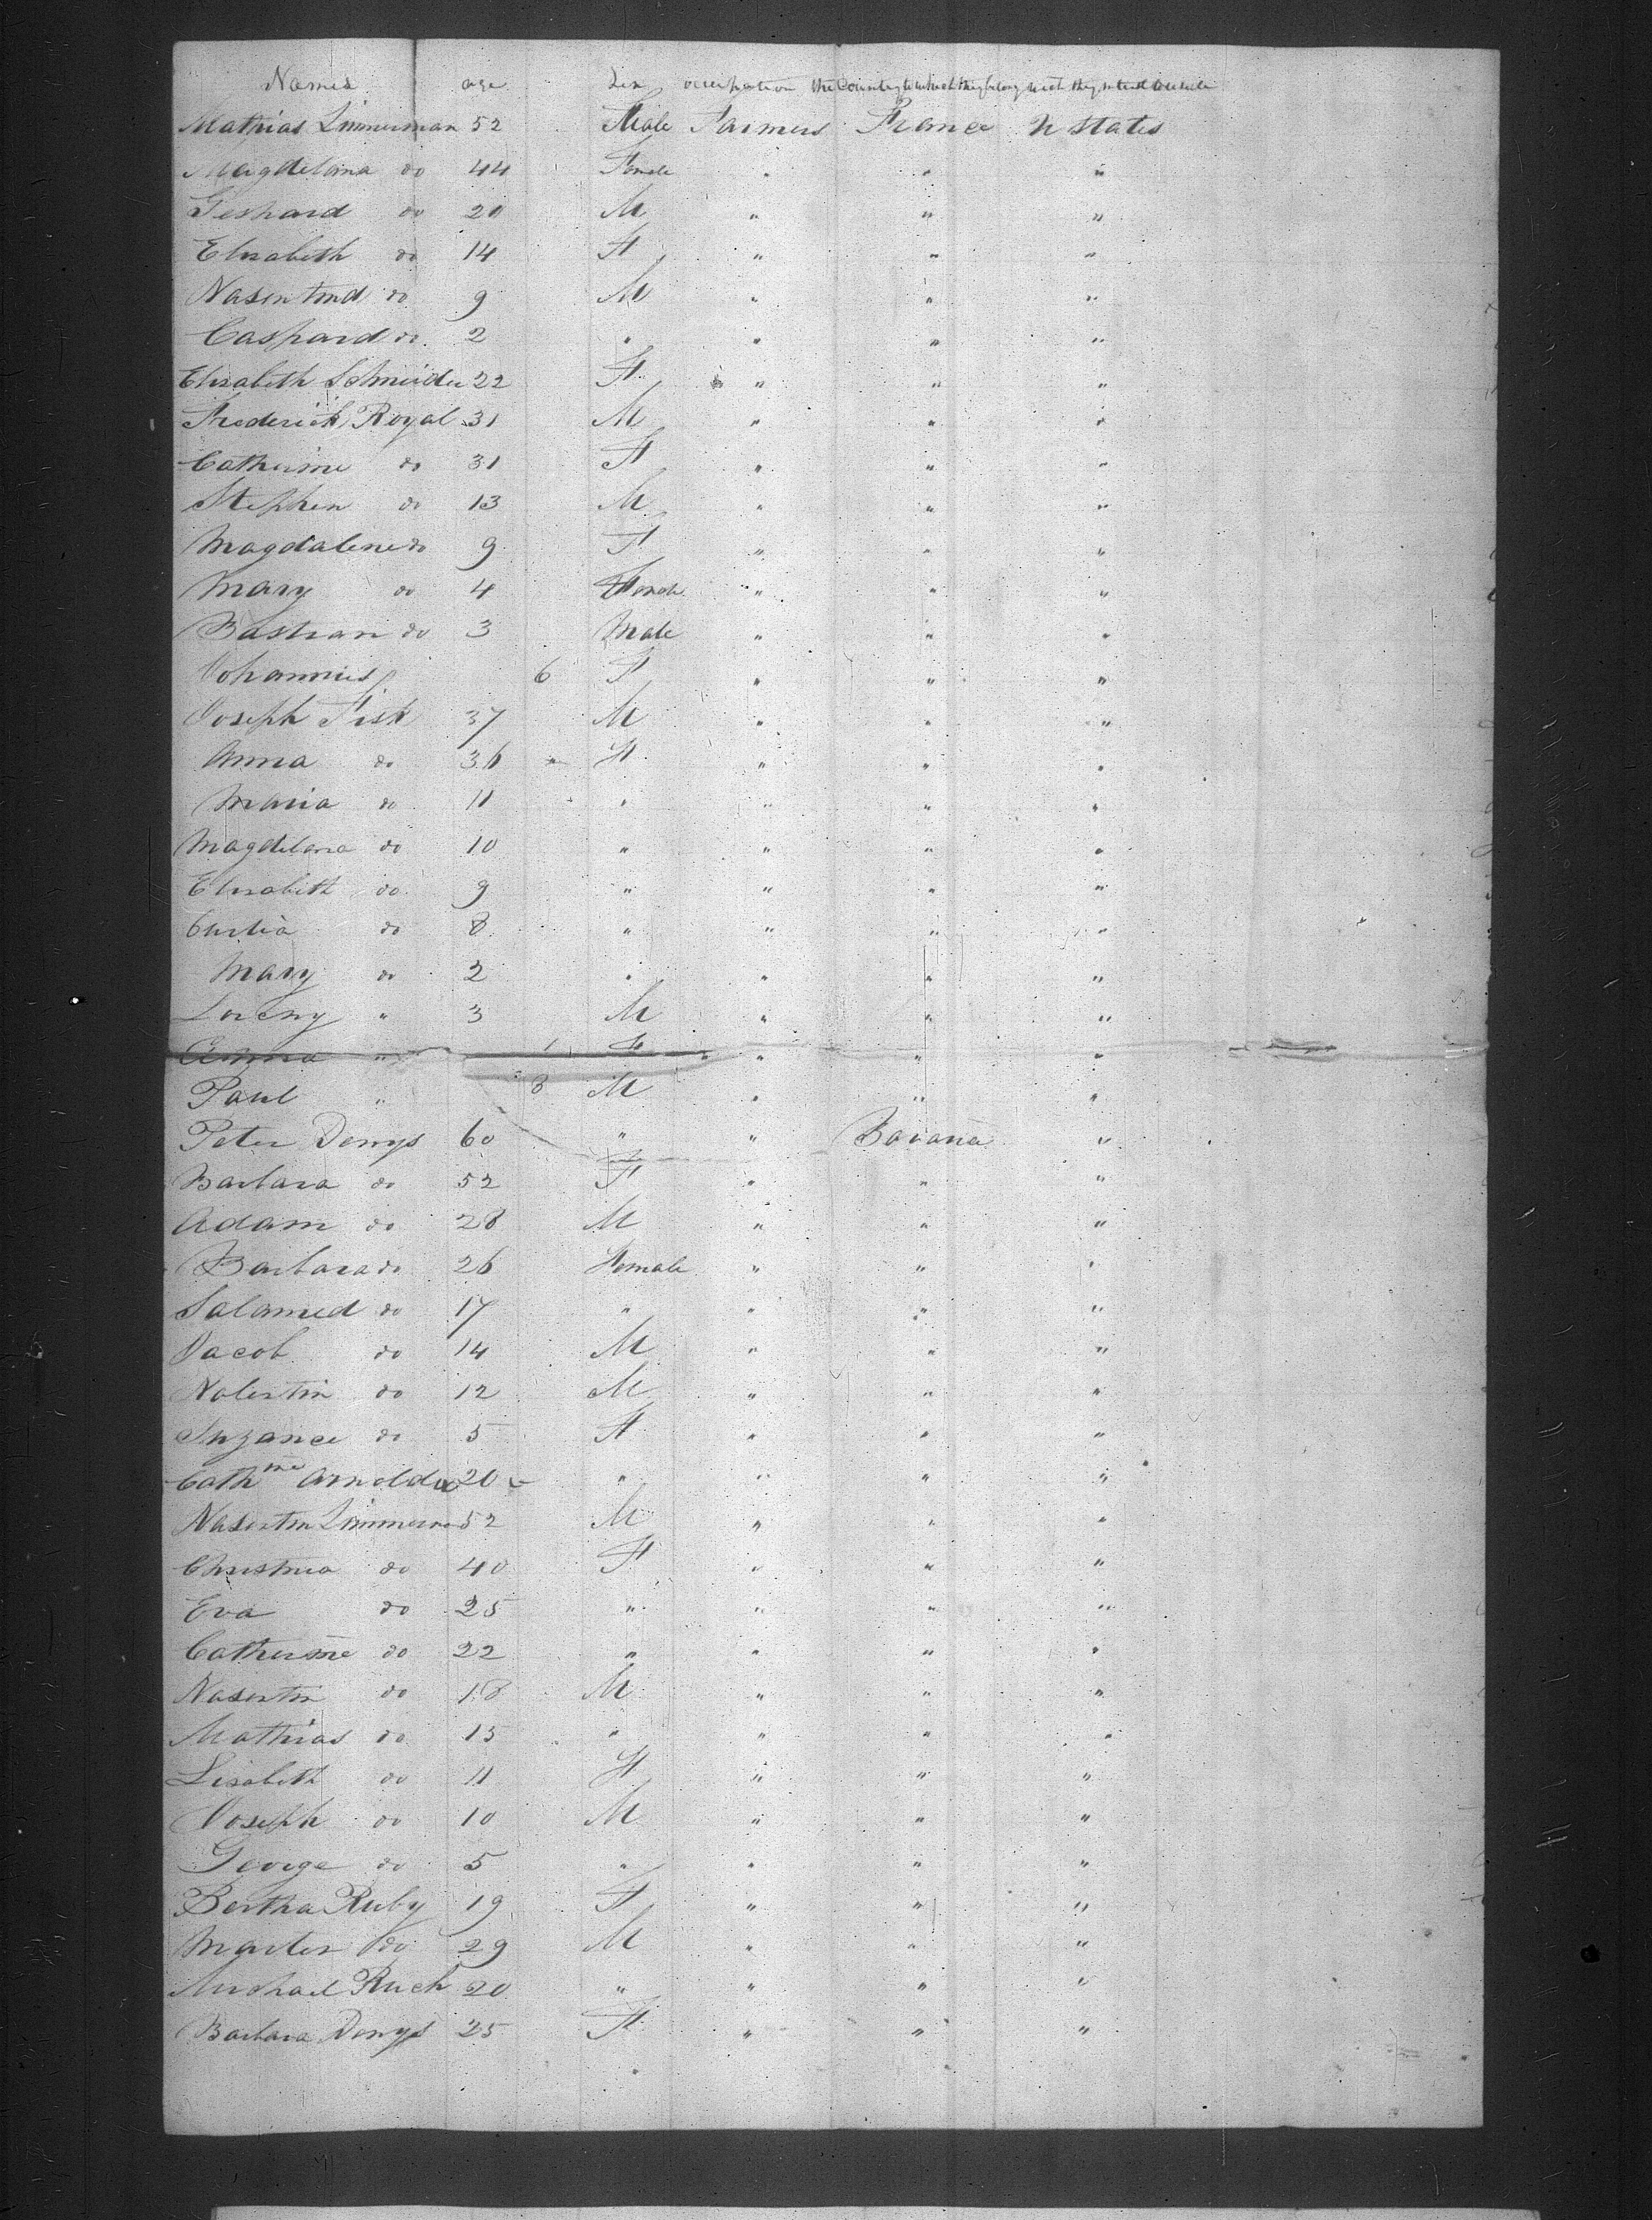 Names age Sex occupation the Country to which they belong which they intend
Mathias Zimmerman 52 Male Farmers France U States
Magdelana do 44 Female " " "
Geshard do 20 M " " "
Elisabeth do 14 F " " "
do 9 M " " "
Caspard do 2 " " " "
Elisabeth Schneider 22 F " " "
Frederick Royal 31 M " " "
Catherine do 31 F " " "
Stephen do 13 M " " "
Magdalene do 9 F " " "
Mary do 4 Female " " "
Bastian do 3 Male " " "
Johannies 6 F " " "
Joseph Fisk 37 M " " "
Anna do 36 F " " "
Maria do 11 " " " "
Magdelena do 10 " " " "
Elisabeth do 9 " " " "
do 8 " " " "
Mary do 2 " " " "
Loreny " 3 M " " "
Anna " 1 F " " "
Paul " 8 M " " "
Peter Denys 60 " " Bavaria "
Barbara do 52 F " " "
Adam do 28 M " " "
Barbara do 26 Female " " "
Salamed do 17 " " " "
Jacob do 14 M " " "
Valentin do 12 M " " "
Suzance do 5 F " " "
Cathne 20 " " " "
Zimmerman 52 M " " "
Christina do 40 F " " "
Eva do 25 " " " "
Catherine do 22 " " " "
do 18 M " " "
Mathias do 15 " " " "
Lisabeth do 11 F " " "
Joseph do 10 M " " "
George do 5 " " " "
Bertha Ruby 19 F " " "
Marten do 29 M " " "
Michael Ruch 20 " " " "
Barbara Denys 25 F " " "